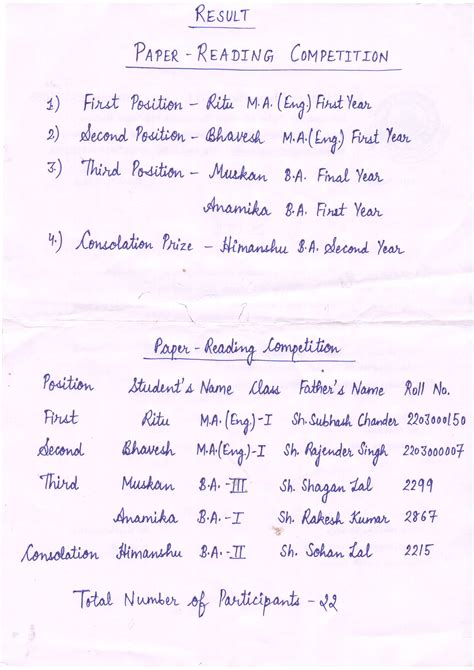 RESULT
PAPER-READING COMPETITION
1) First Position - Ritu M.A.(Eng) First Year
2) Second Position - Bhavesh M.A.(Eng.) First Year
3.) Third Position - Muskan B.A. Final Year
Anamika B.A. First Year
4.) Consolation Prize - Himanshu B.A. Second Year
Paper-Reading Competition
Position Student's Name Class Father's Name Roll No.
First Ritu M.A.(Eng)-I Sh. Subhash Chander 2203000150
Second Bhavesh M.A.(Eng)-I Sh. Rajender Singh 2203000007
Third Muskan B.A.-III Sh. Shagan Lal 2299
Anamika B.A.-I Sh. Rakesh Kumar 2867
Consolation Himanshu B.A.-II Sh. Sohan Lal 2215
Total Number of Participants - 22